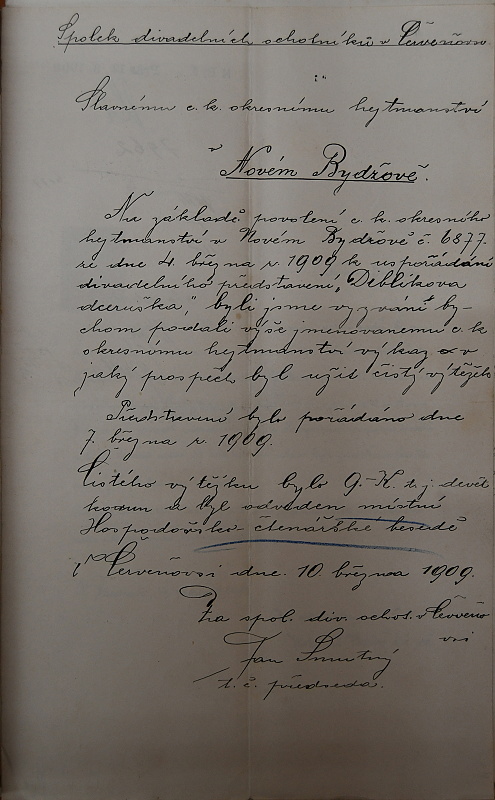 Spolek divadelních ochotníků v Červeňovsi
Slavnému c. k. okresnímu hejtmanství
v
Novém Bydžově.
Na základě povolení c. k. okresního
hejtmanství v Novém Bydžově č. 6877.
ze dne 4. března r. 1909 k uspořádání
divadelního představení, "Deblíkova
dceruška," byli jsme vyzváni by-
chom podali výše jmenovanému c. k.
okresnímu hejtmanství výkaz v
jaký prospěch byl užit čistý výtěžek.
Představení bylo pořádáno dne
7. března r. 1909.
Čistého výtěžku bylo 9.-K. t. j. devět
korun a byl odveden místní
Hospodářsko-čtenářské besedě
v Červeňovsi dne. 10. března 1909.
Za spol. div. ochot. v Červeňo
vsi
Jan Smutný
t. č. předseda.